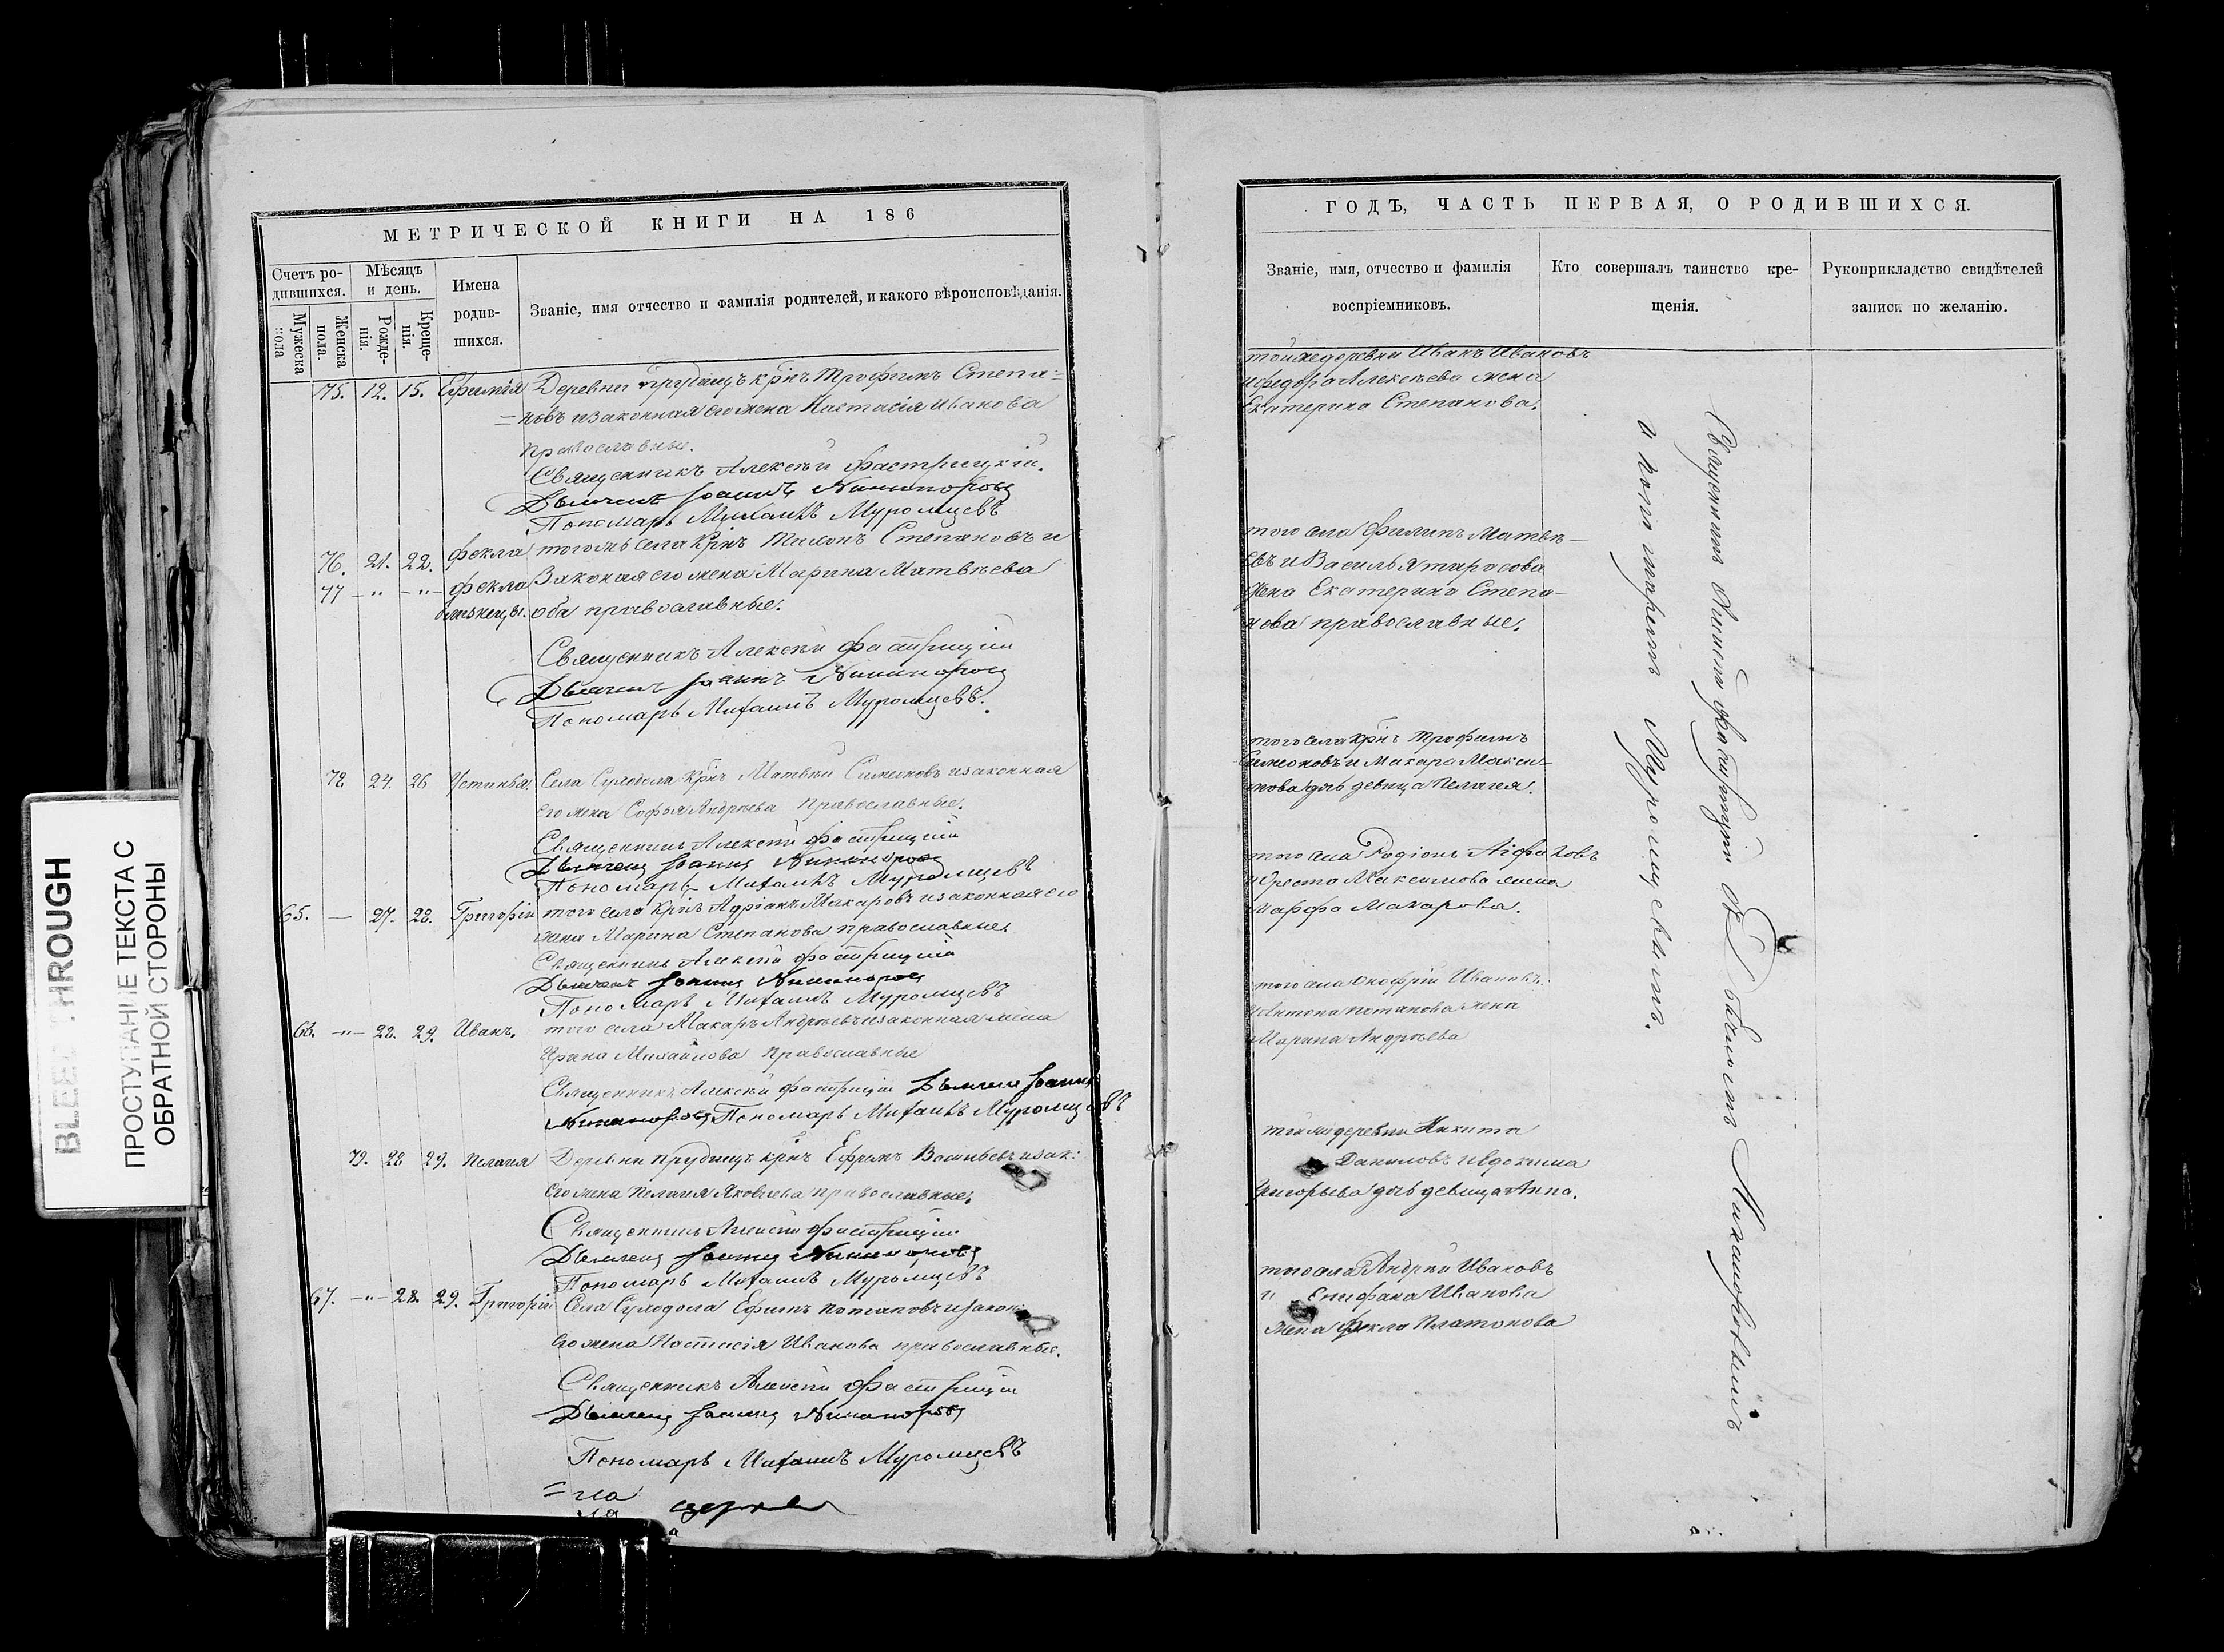 МЕТРИЧЕСКОЙ КНИГИ НА 186
Счетъ ро-
дившихся.
Мѣсяцъ
и день.
Имена
родив-
шихся.
Званіе, имя отчество и фамилія родителей, и какого вѣроисповѣданія.
Мужеска
пола
Женска
пола.
Рожде-
нія.
Креще-
нія.
75. 12. 15. Ефимія Деревни Прудищъ крнъ Трофимъ Степа=
=новъ изаконная его жена Настасія Иванова
православные.
Священникъ Алексѣй Фастрицкій.
Дьячекъ Іоаннъ Никаноровъ
Пономарь Михаилъ Муромцевъ
76. 21. 22. Фекла тогожъ села крнъ Тихонъ Степановъ и
77 – " – " – Фекла Законая его жена Марина Матвѣева
близнецы. оба православные.
Священникъ Алексѣй Фастрицкій
Дьячекъ Іоаннъ Никаноровъ
Пономарь Михаилъ Муромцевъ.
78 24. 26 Устинья. Села Суходола крнъ Матвѣй Симеоновъ изаконная
его жена Софья Андрѣева православные.
Священникъ Алексѣй Фастрицкій
Дьячекъ Іоаннъ Никаноровъ
Пономарь Михаилъ Муромцевъ
65. — 27. 28. Григорій того села крнъ Адріанъ Макаровъ изаконная его
жена Марина Степанова православные.
Священникъ Алексѣй Фастрицкій
Дьячекъ Іоаннъ Никаноровъ
Пономарь Михаилъ Муромцевъ
66. – " – 28. 29. Иванъ. того села Макаръ Андрѣевъ изаконная жена
Михайлова православные
Священникъ Алексѣй Фастрицкій Дьячекъ Іоаннъ
Никаноровъ Пономарь Михаилъ Муромцевъ
79. 28 29. Пелагея Деревни Прудищъ крнъ Ефремъ Васильевъ изак:
его жена Пелагея Яковлева православные.
Священникъ Алексѣй Фастрицкій
Дьячекъ Іоаннъ Никаноровъ
Пономарь Михаилъ Муромцевъ
67. – " – 28. 29. Григорій Села Суходола Ефимъ Потаповъ изакон:
его жена Настасія Иванова православные.
Священникъ Алексѣй Фастрицкій
Дьячекъ Іоаннъ Никаноровъ
Пономарь Михаилъ Муромцевъ
ГОДЪ, ЧАСТЬ ПЕРВАЯ, О РОДИВШИХСЯ.
Званіе, имя, отчество и фамилія
воспріемниковъ.
Кто совершалъ таинство кре-
щенія.
Рукоприкладство свидѣтелей
записи по желанію.
тойже деревни Иванъ Ивановъ
и Федора Алексѣева жена
Екатерина Степанова.
того села Филипъ Матвѣ–
евъ и Василья Тарасова
жена Екатерина Степа–
нова православные.
того села крнъ Трофимъ
Симеоновъ и Макара Макси–
мова дчь девица Пелагея.
того села Родіонъ
Максимова жена
Марфа Макарова.
того села Онофрій Ивановъ.
и Антона Потапова жена
Марина Андрѣева
тойже деревни Никита
Даниловъ и Евдокима
Григорьева дчь девица Анна.
того села Андрѣй Ивановъ
и Епифана Иванова
жена Фекла Платонова
Священникъ Алексѣй Фастрицкій съ Дьячкомъ Никаноровымъ
и пономаремъ Муромцевымъ.
BLEED THROUGH
ПРОСТУПАНИЕ ТЕКСТА С
ОБРАТНОЙ СТОРОНЫ